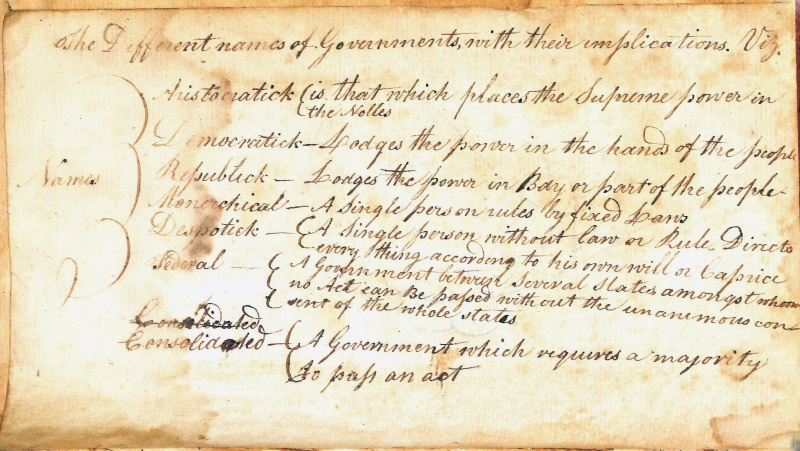 The Different names of Governments, with their implications. Viz.
Aristocratick { is that which places the Supreme power in
the Nobles
Democratick – Lodges the power in the hands of the people
Names
Republick – Lodges the power in Bdy or part of the people
Monerchical – A Single person rules by fixed Laws
Despotick – { A Single person without law or Rule, Directs
every thing according to his own will or Caprice
Federal – { A Government between Several States amongst whom
no Act can be passed without the unanimous con–
sent of the whole states
Consolidated
Consolidated – { A Government which requires a majority
to pass an act